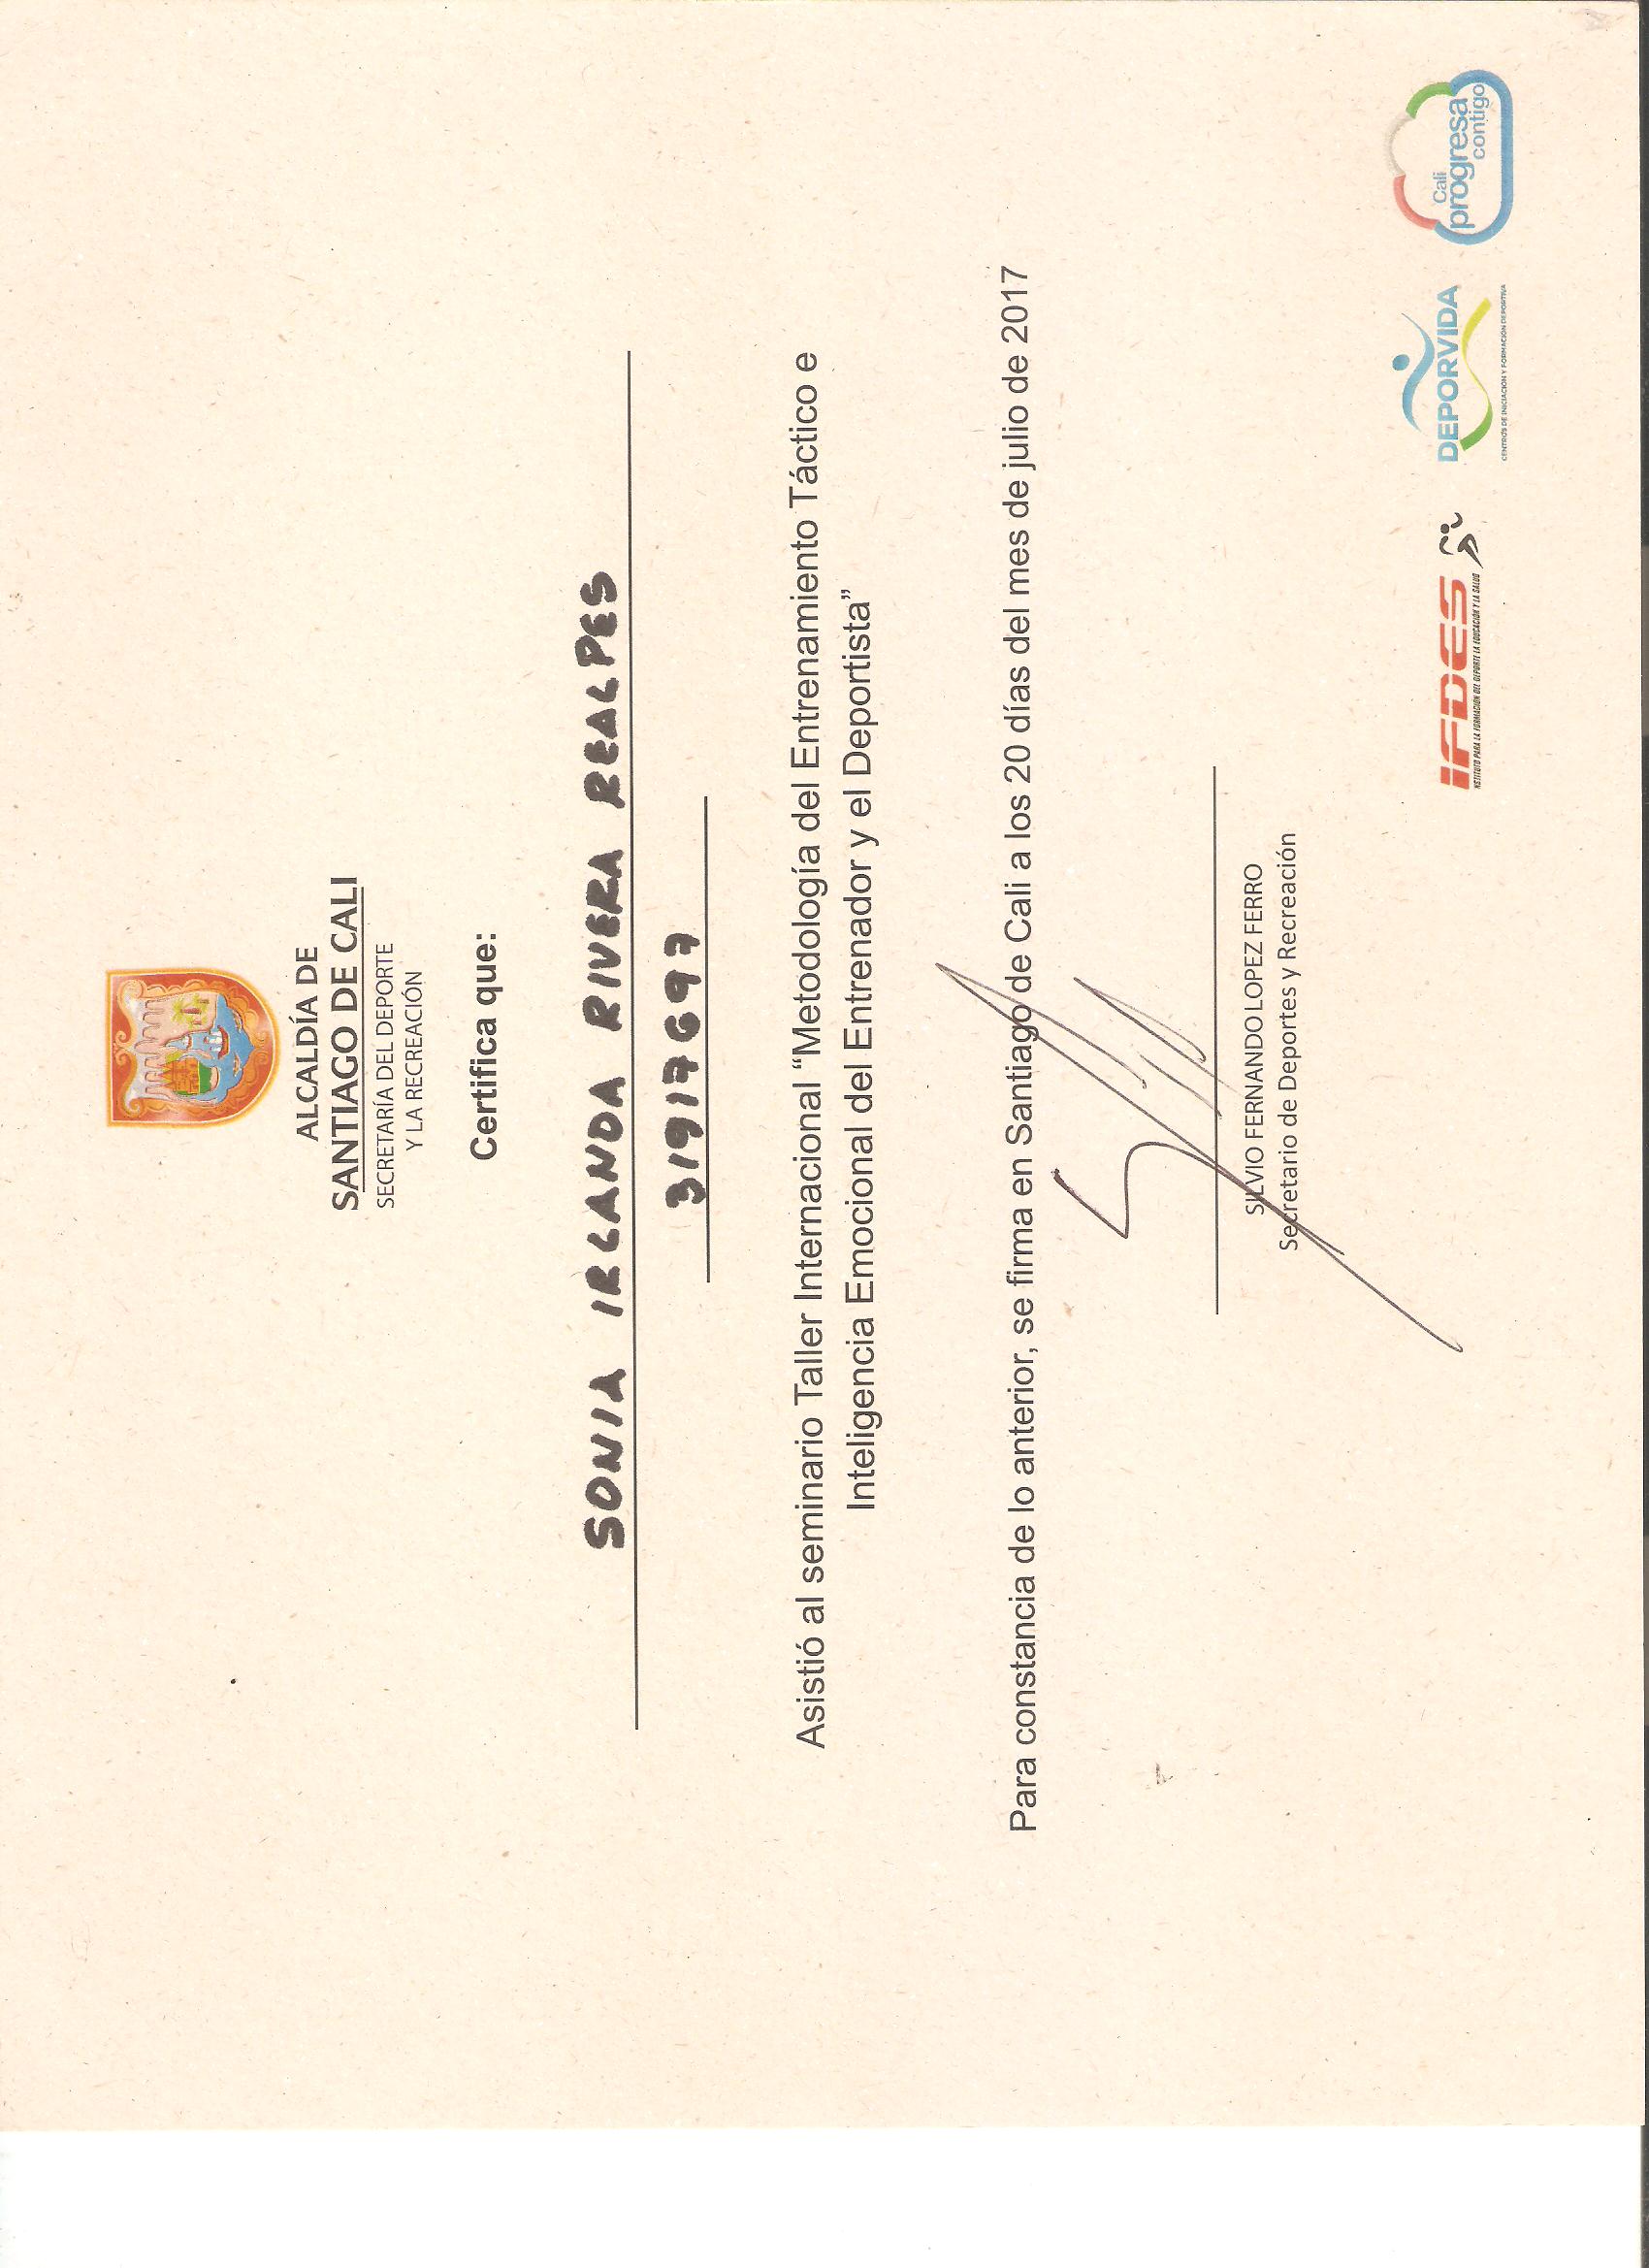 ALCALDÍA DE
SANTIAGO DE CALI
SECRETARÍA DEL DEPORTE
Y LA RECREACIÓN
Certifica que:
SONIA IRLANDA RIVERA REALPES
31917697
Asistió al seminario Taller Internacional “Metodología del Entrenamiento Táctico e
Inteligencia Emocional del Entrenador y el Deportista”
Para constancia de lo anterior, se firma en Santiago de Cali a los 20 días del mes de julio de 2017
SILVIO FERNANDO LOPEZ FERRO
Secretario de Deportes y Recreación
IFDES
INSTITUTO PARA LA FORMACION DEL DEPORTE LA EDUCACIÓN Y LA SALUD
DEPORVIDA
CENTROS DE INICIACIÓN Y FORMACIÓN DEPORTIVA
Cali
progresa
contigo